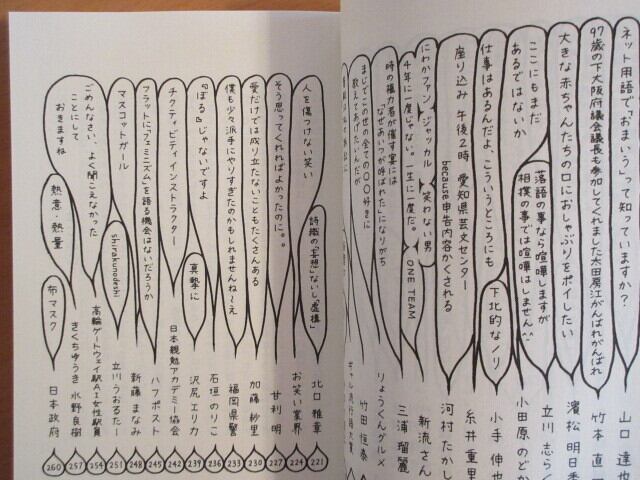 ネット用語で「おまいう」って知っていますか?
97歳の下大阪府議会議長も参加してくれました太田房江がんばれがんばれ
大きな赤ちゃんたちの口におしゃぶりをポイしたい
ここにもまだ
あるではないか
落語の事なら喧嘩しますが
相撲の事では喧嘩はしません^^
仕事はあるんだよ、こういうところにも
下北的なノリ
座り込み 午後2時 愛知県芸文センター
because申告内容かくされる
にわかファン ジャッカル 笑わない男
4年に一度じゃない。一生に一度だ。 ONE TEAM
時の権力者が催す宴には
「なぜあいつが呼ばれた」になりがち
まじでこの世の全ての〇〇好きに
教えてあげたいんだが
山口達也
竹本直一
濱松明日香
立川志らく
小田原のどか
小手伸也
糸井重里
河村たかし
新流さん
三浦瑠麗
りょうくんグルメ
竹田恒泰
人を傷つけない笑い
詩織の「妄想」ないし「虚構」
そう思ってくれればよかったのに。。
愛だけでは成り立たないこともたくさんある
僕も少々派手にやりすぎたのかもしれませんね〜え
『ぼる』じゃないですよ
真摯に
チクティビティインストラクター
フラットに「フェミニズム」を語る機会はないだろうか
マスコットガール
shirakunodeshi
ごめんなさい、よく聞こえなかった
ことにして
おきますね
熱意・熱量
布マスク
北口雅章
お笑い業界
甘利明
加藤紗里
福岡県警
石垣のりこ
沢尻エリカ
日本親勉アカデミー協会
ハフポスト
新藤まなみ
立川うおるたー
高輪ゲートウェイ駅AI女性駅員
きくちゆうき 水野良樹
日本政府
221
224
227
230
233
236
239
242
245
248
251
254
257
260